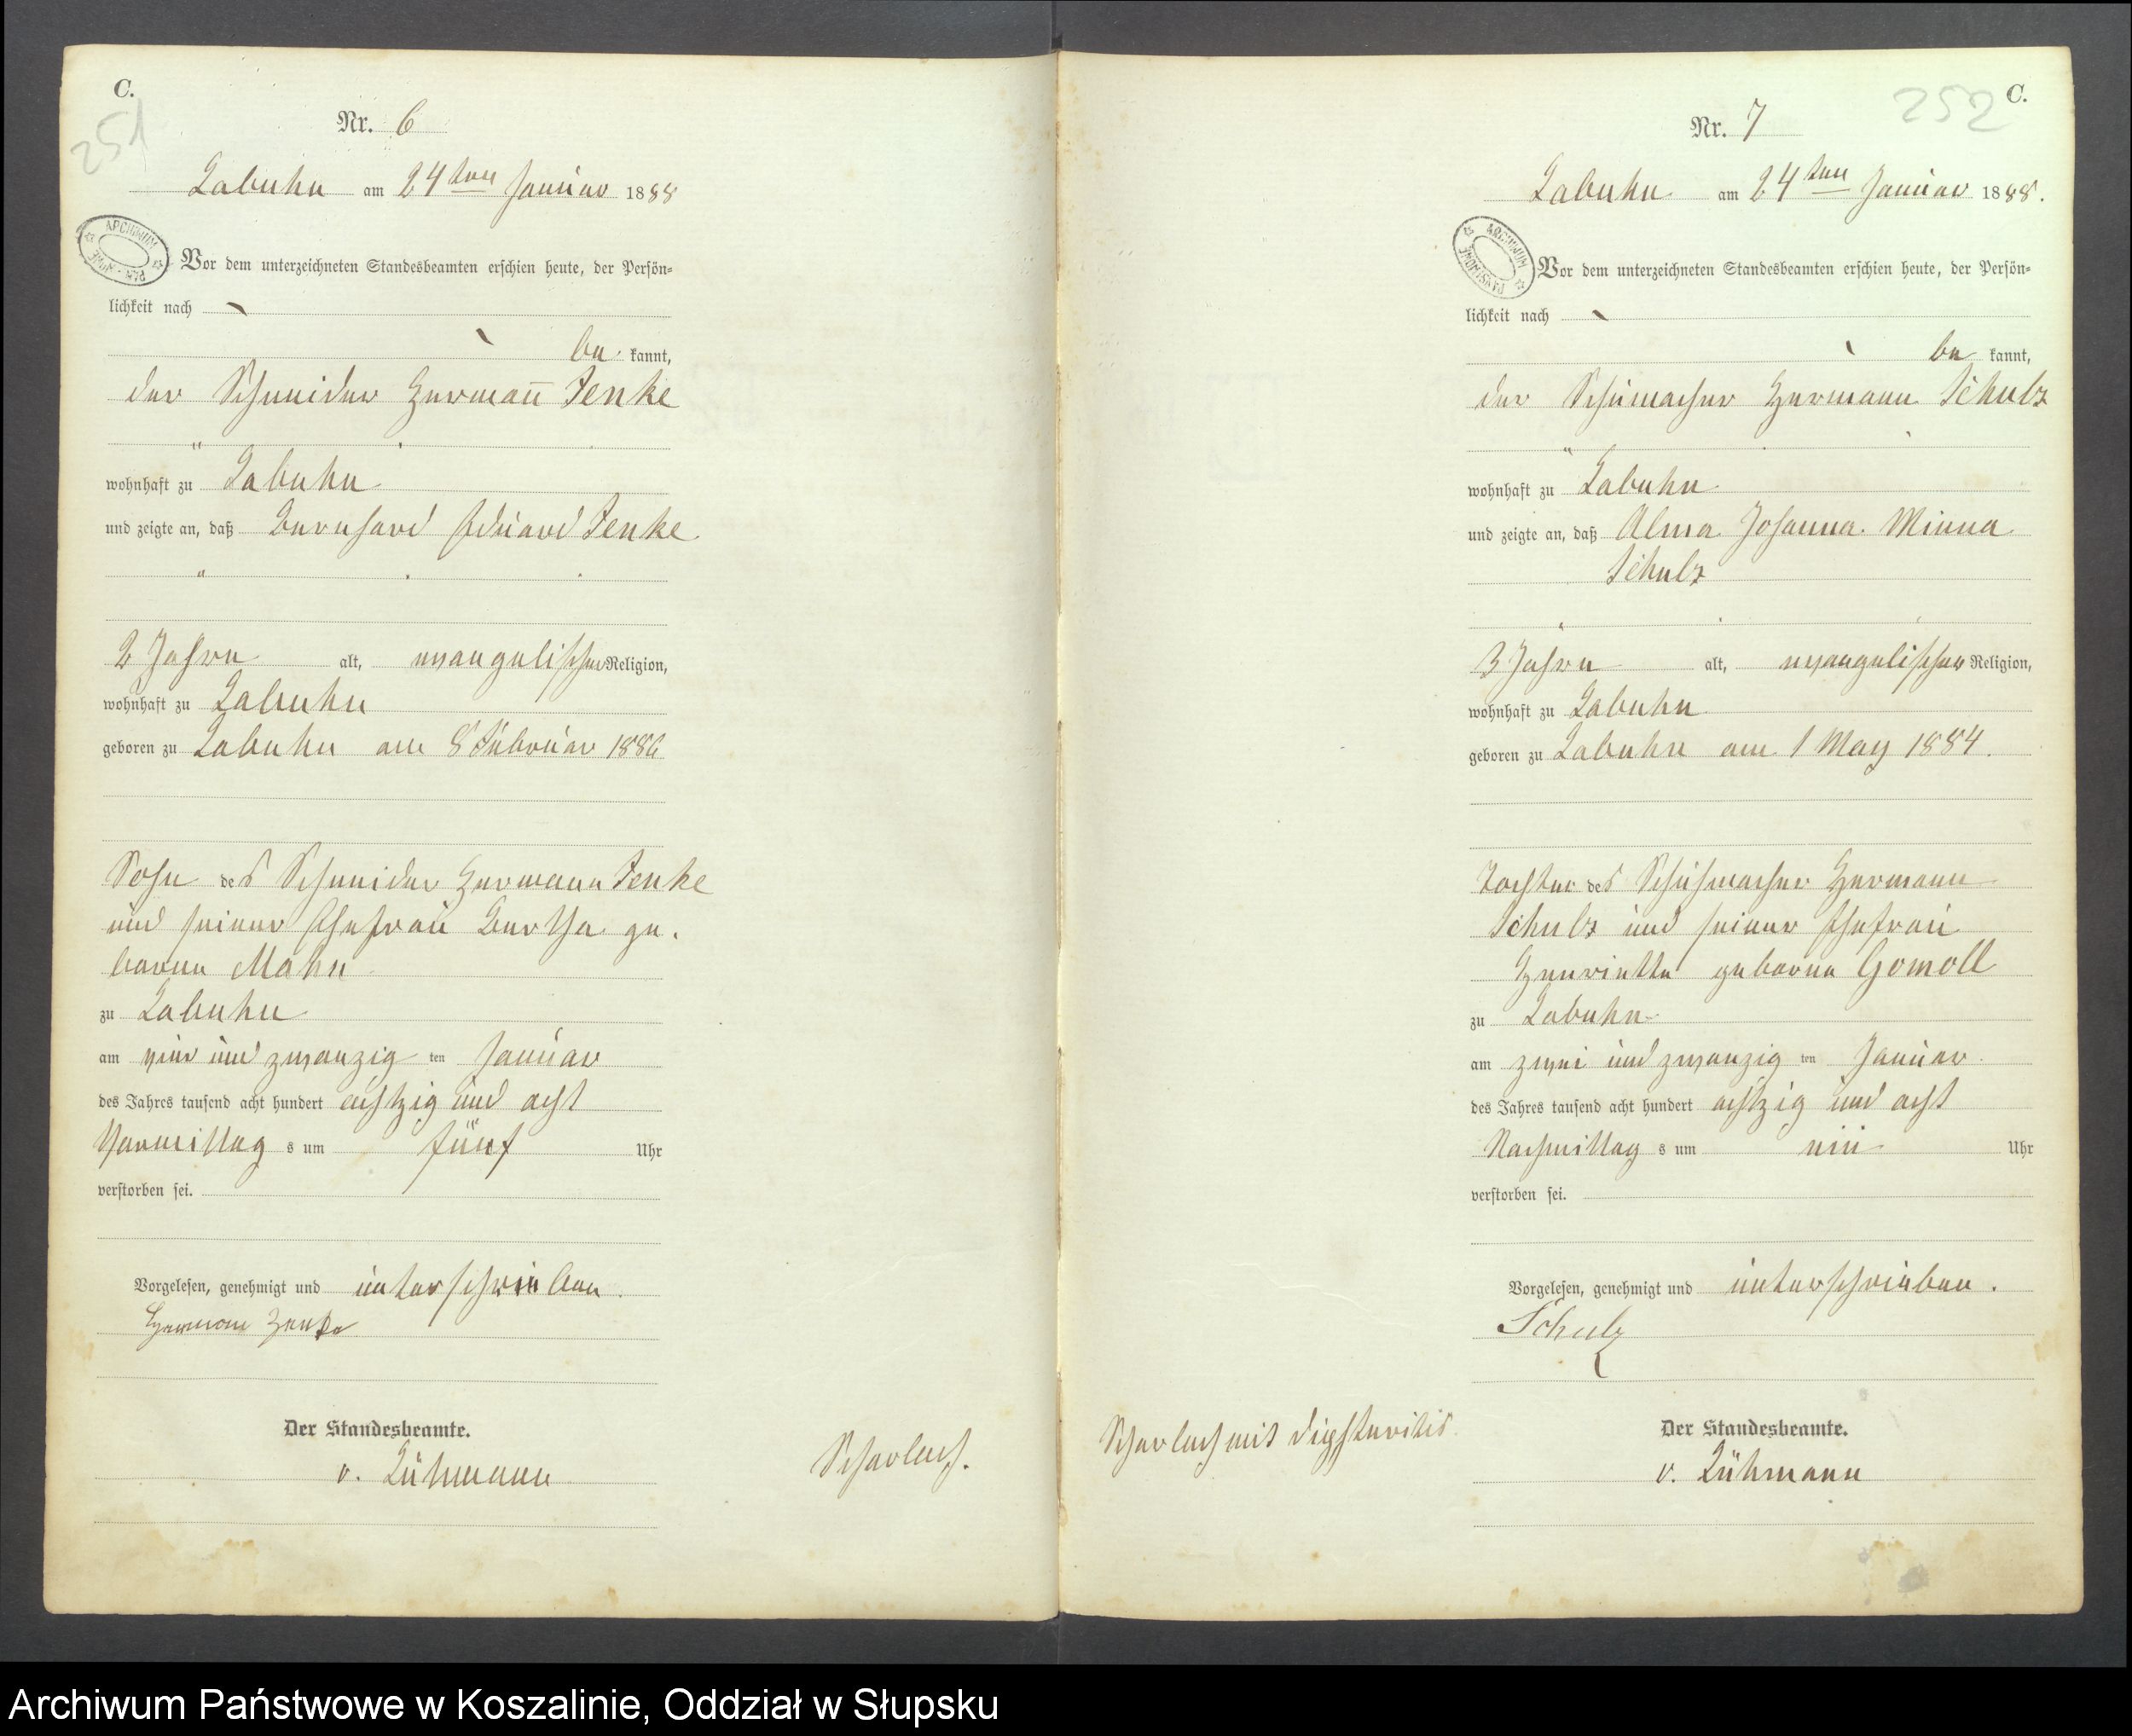 C.
251
Nr. 6
Labuhn am 24ten Januar 1888
ARCHIWUM
Vor dem unterzeichneten Standesbeamten erschien heute, der Persön=
lichkeit nach
be kannt,
der Schneider Hermann Zenke
wohnhaft zu Labuhn
und zeigte an, daß Bernhard Eduard Zenke
2 Jahre alt, evangelischer Religion,
wohnhaft zu Labuhn
geboren zu Labuhn am 8 Februar 1886
Sohn des Schneider Hermann Zenke
und seiner Ehefrau Bertha ge.
borne Mahn
zu Labuhn
am vier und zwanzig ten Januar
des Jahres tausend acht hundert achtzig und acht
Vormittag s um fünf Uhr
verstorben sei.
Vorgelesen, genehmigt und unterschrieben.
Hermann Zenke
Der Standesbeamte.
v. Lühmann
Scharlach.
252
C.
Nr. 7
Labuhn am 24ten Januar 1888.
ARCHIWUM
Vor dem unterzeichneten Standesbeamten erschien heute, der Persön=
lichkeit nach
be kannt,
der Schumacher Hermann Schulz
wohnhaft zu Labuhn
und zeigte an, daß Alma Johanna Minna
Schulz
3 Jahre alt, evangelischer Religion,
wohnhaft zu Labuhn
geboren zu Labuhn am 1 May 1884.
Tochter des Schuhmacher Hermann
Schulz und seiner Ehefrau
Henriette geborne Gomoll
zu Labuhn
am zwei und zwanzig ten Januar
des Jahres tausend acht hundert achtzig und acht
Nachmittag s um ein Uhr
verstorben sei.
Vorgelesen, genehmigt und unterschrieben.
Schulz
Der Standesbeamte.
v. Lühmann
Scharlach mit Diphteritis
Archiwum Państwowe w Koszalinie, Oddział w Słupsku